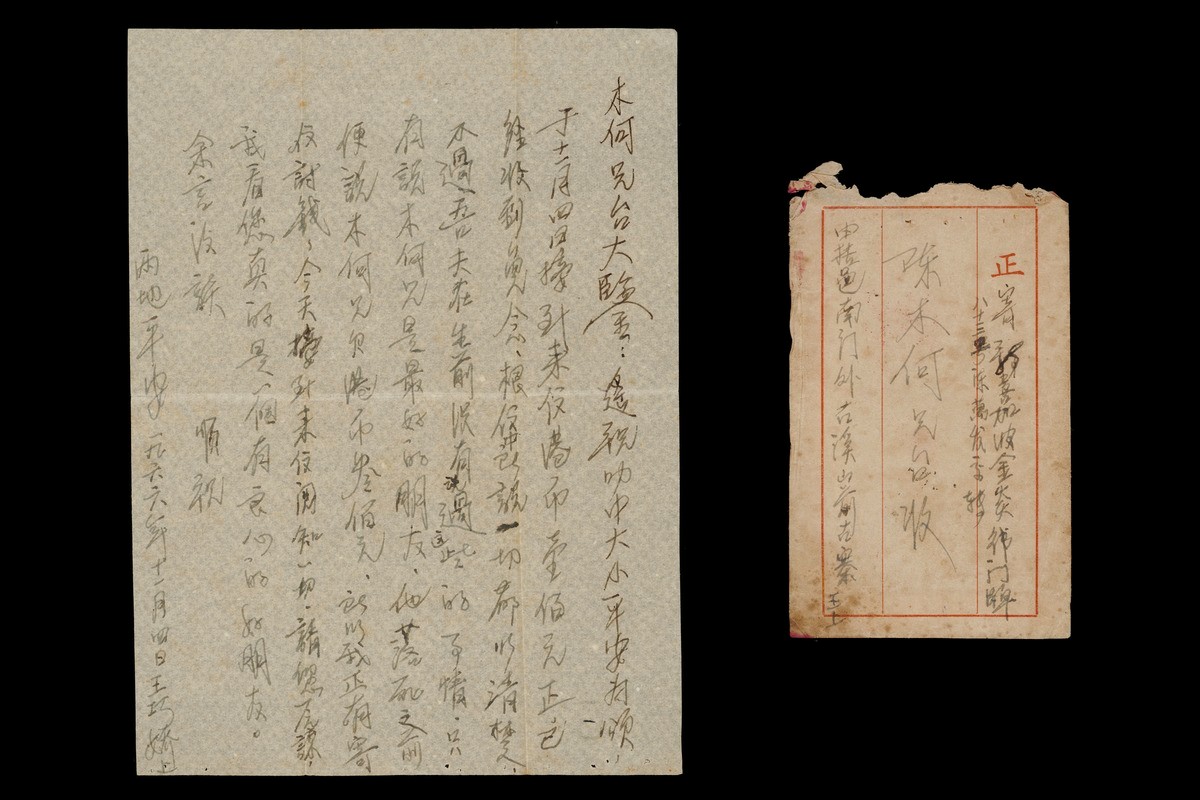 木何兄台大鑒玉：遙祝叻中大小平安为頌，
于十一月四日接到来信港币壹佰元正已
经收到，免念，根信上所說一切都以清楚，
不過吾夫在生前没有說過这些的事情，只
有說木何兄是最好的朋友，他落死之前
便說木何兄欠港币叁佰元，所以我正有寄
信討錢，今天接到来信閱知一切，請您原諒，
我看您真的是一個有良心的好朋友。
余言後談
順祝
兩地平安 一九六六年十一月四日 王巧嬌上
正
寄 新嘉坡金炎律门牌
八十三号陈萬发 转
陈木何兄 收
由揭邑南门外古溪山前古寨 王上